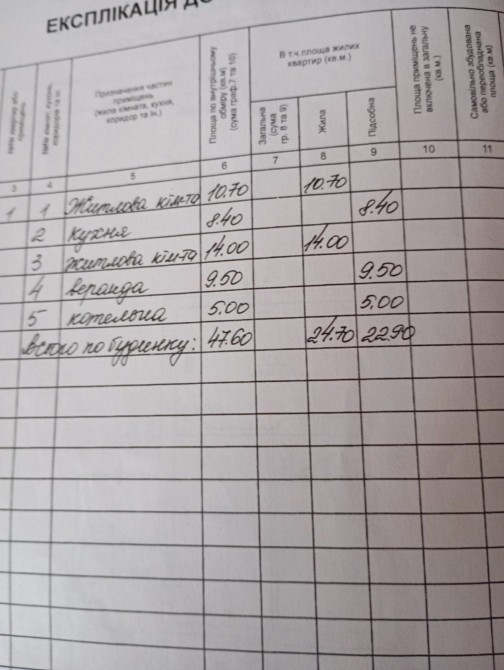 ЕКСПЛІКАЦІЯ ДО
№№ кімнат, кухонь, коридорів та ін.
Призначення частин приміщень (жила кімната, кухня, коридор та ін.)
Площа по внутрішньому обміру (кв.м) (сума граф.7 та 10)
В т.ч. площа жилих квартир (кв.м.)
Загальна (сума гр. 8 та 9)
Жила
Підсобна
Площа приміщень не включена в загальну (кв.м.)
Самовільно збудована або переобладнана площа (кв.м)
3 4 5 6 7 8 9 10 11
1 1 Житлова кімта 10.70 10.70
2 кухня 8.40 8.40
3 житлова кімта 14.00 14.00
4 веранда 9.50 9.50
5 котельна 5.00 5.00
всього по будинку: 47.60 24.70 22.90